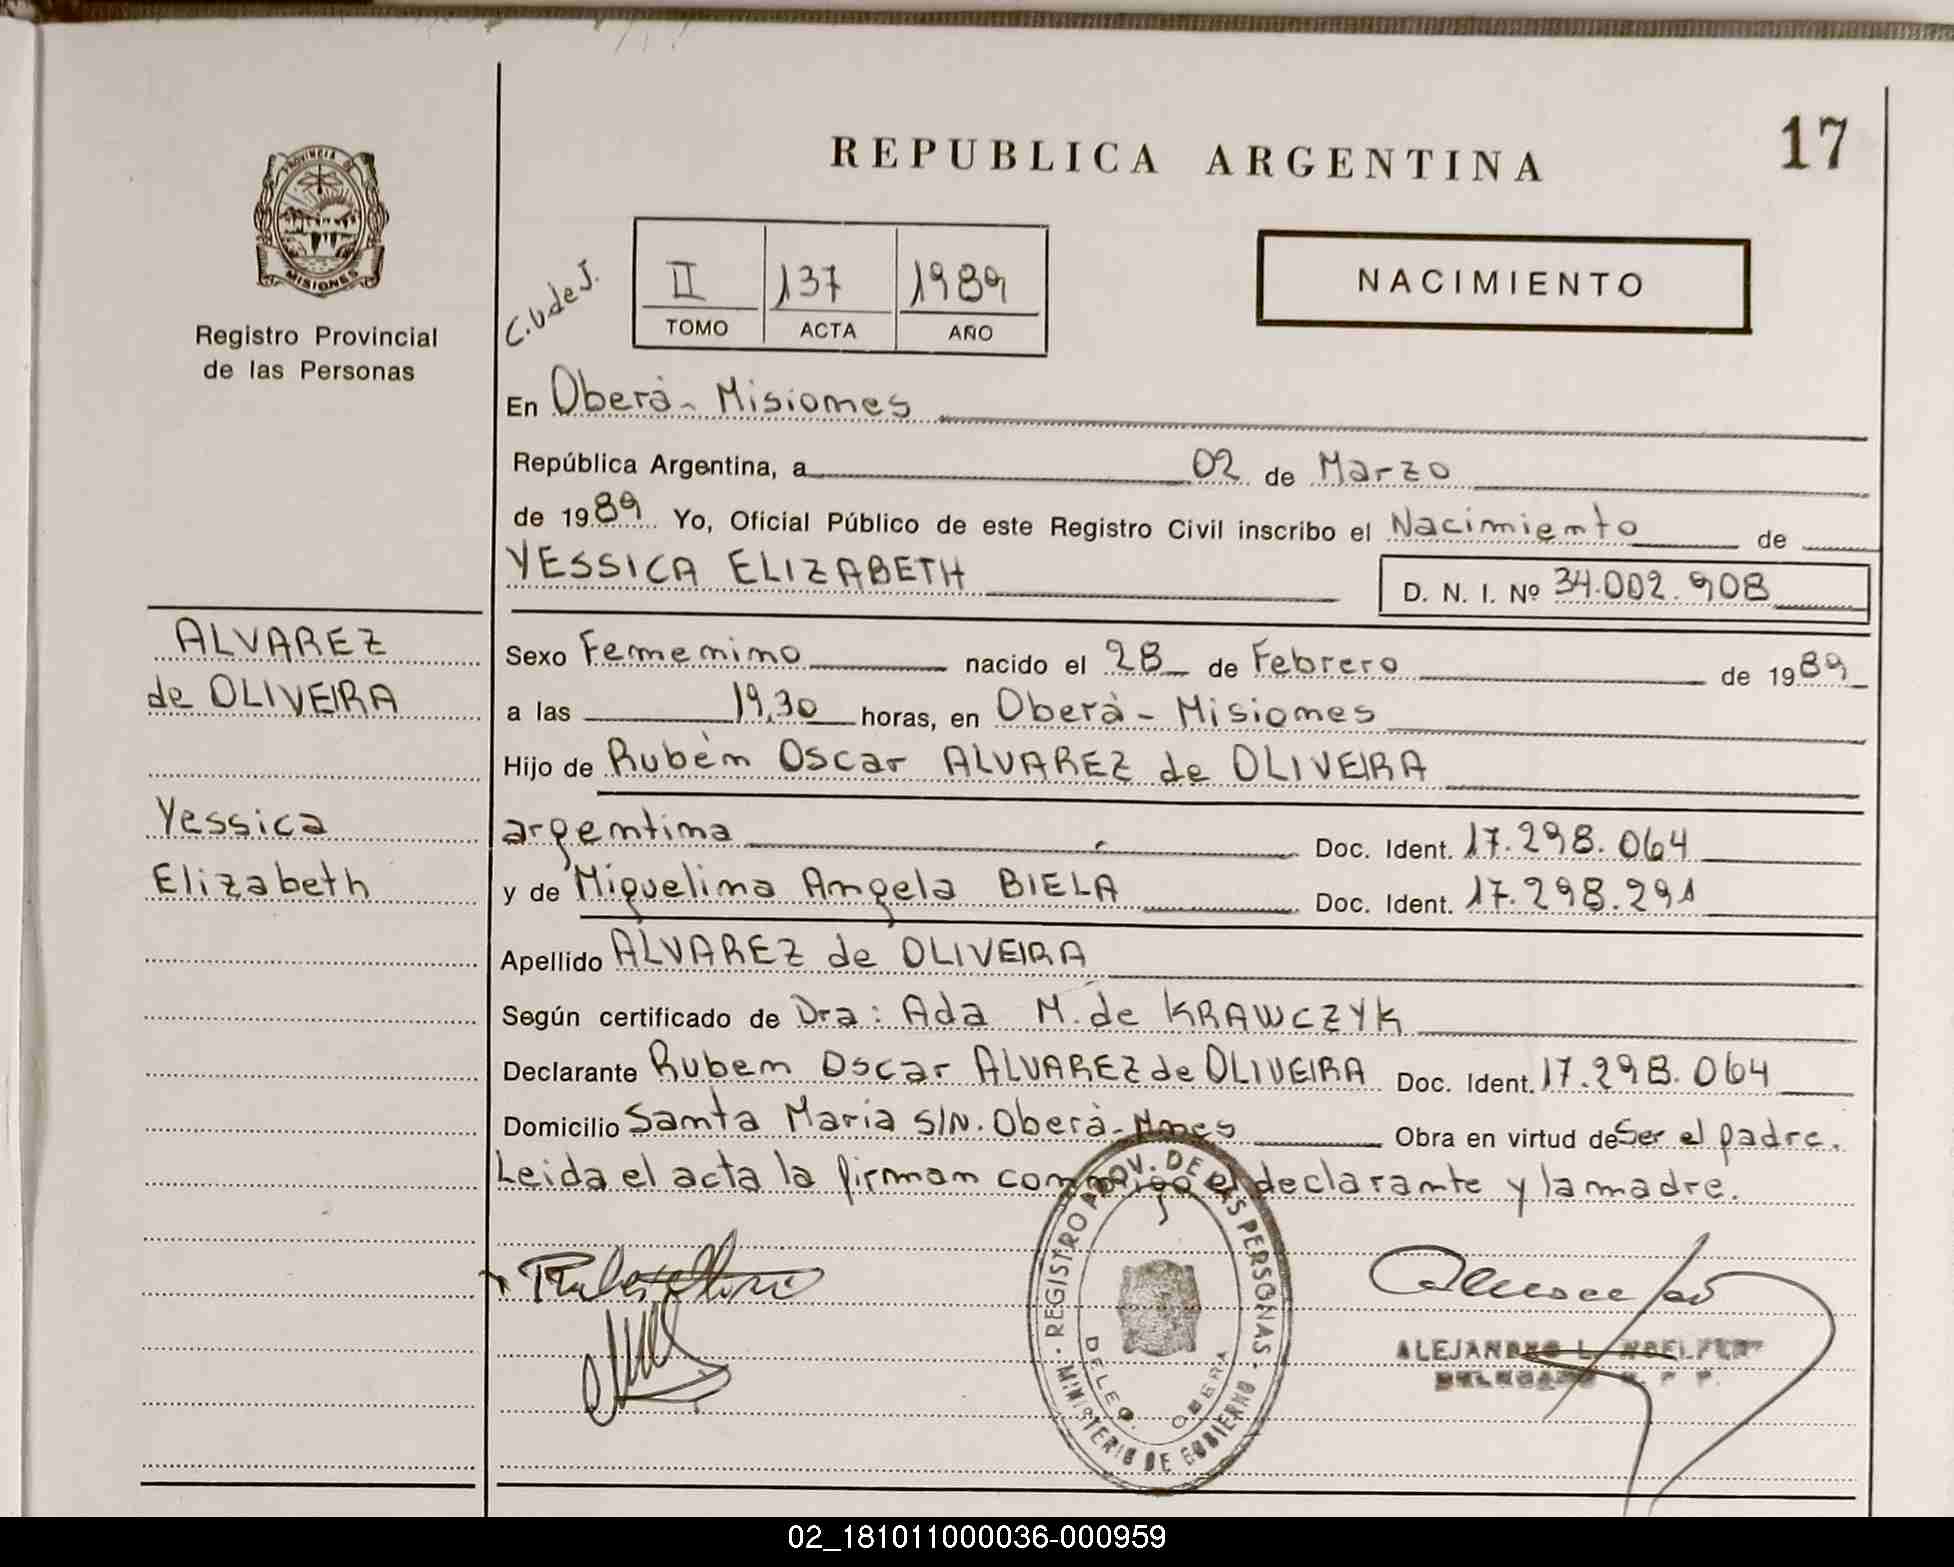 17
REPUBLICA ARGENTINA
PROVINCIA DE
MISIONES
Registro Provincial
de las Personas
C.U de J.
II 137 1989
TOMO ACTA AÑO
NACIMIENTO
En Oberá - Misiones
República Argentina, a 02 de Marzo
de 1989 Yo, Oficial Público de este Registro Civil inscribo el Nacimiento de
YESSICA ELIZABETH
D. N. I. Nº 34.002.908
ALVAREZ
de OLIVEIRA
Yessica
Elizabeth
Sexo Femenino nacido el 28 de Febrero de 1989
a las 19,30 horas, en Oberá - Misiones
Hijo de Rubén Oscar ALVAREZ de OLIVEIRA
argentina Doc. Ident. 17.298.064
y de Miguelina Angela BIELA Doc. Ident. 17.298.291
Apellido ALVAREZ de OLIVEIRA
Según certificado de Dra: Ada M. de KRAWCZYK
Declarante Ruben Oscar ALVAREZ de OLIVEIRA Doc. Ident. 17.298.064
Domicilio Santa Maria S/N. Oberá - Mnes Obra en virtud de Ser el padre.
Leida el acta la firman conmigo el declarante y la madre.
REGISTRO PROV. DE LAS PERSONAS
MINISTERIO DE GOBIERNO
DELEG. OBERA
ALEJANDRO L.
DELEGADO R. P. P.
02_181011000036-000959